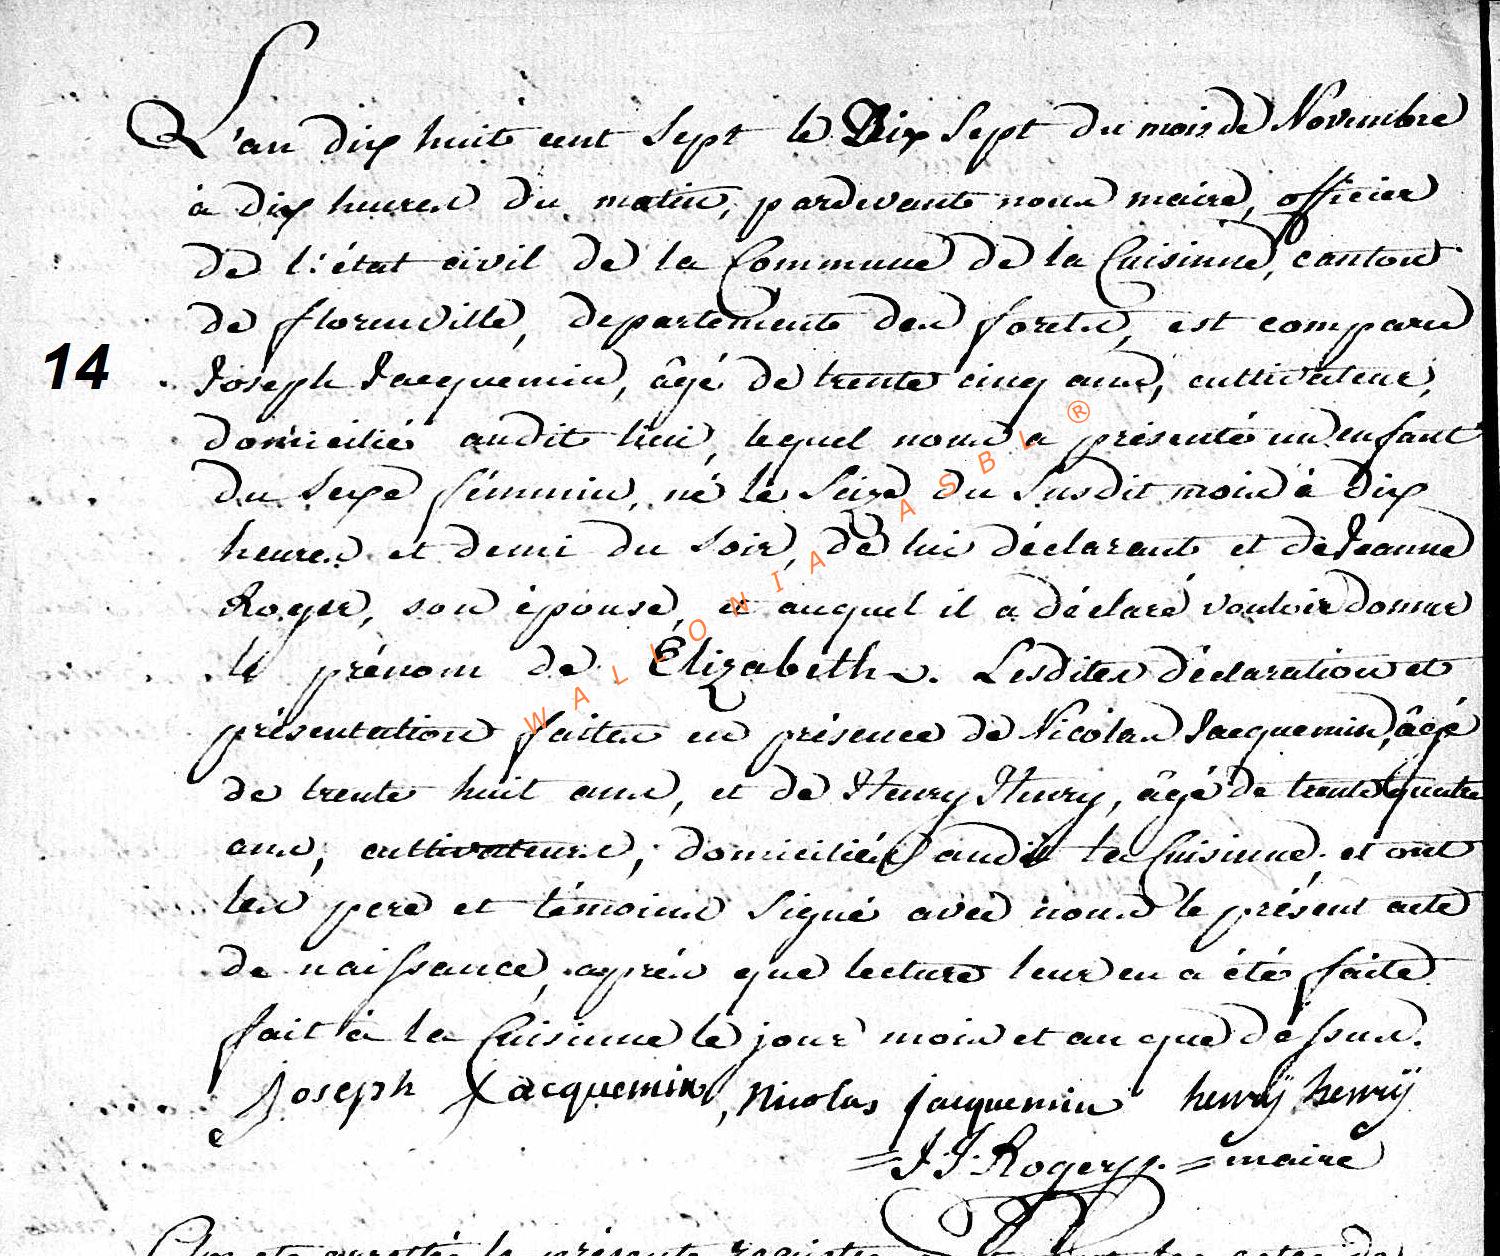 L'an dix huit cent sept le Dix Sept du mois de Novembre
à dix heures du matin, pardevant nous maire, officier
de l'état civil de la Commune de la Cuisinne, canton
de florenville, departement des forets, est comparu
14
Joseph Jacquemin, âgé de trente cinq ans, cultivateur,
domicilié audit lieu, lequel nous a présenté un enfant
du sexe féminin, né le Seize du Susdit mois à dix
heures et demi du soir, de lui déclarant et de Jeanne
Roger, son épouse, et auquel il a déclaré vouloir donner
le prénom de Elizabeth. Lesdites déclaration et
présentation faites en présence de Nicolas Jacquemin, âgé
de trente huit ans, et de Henry Henry, âgé de trente quatre
ans, cultivateurs, domiciliés audit la Cuisinne. et ont
les pere et témoins signé avec nous le présent acte
de naissance, après que lecture leur en a été faite
fait à la Cuisinne le jour mois et an que dessus.
Joseph Jacquemin, Nicolas jacquemin henrÿ henrÿ
= J. J. Roger. = maire
WALLONIA ASBL ®
le présente registre